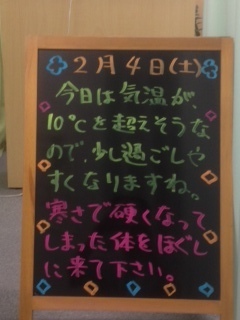 2月4日(土)
今日は気温が、
10℃を超えそうな
ので、少し過ごしや
すくなりますね。
寒さで硬くなって
しまった体をほぐし
に来て下さい。